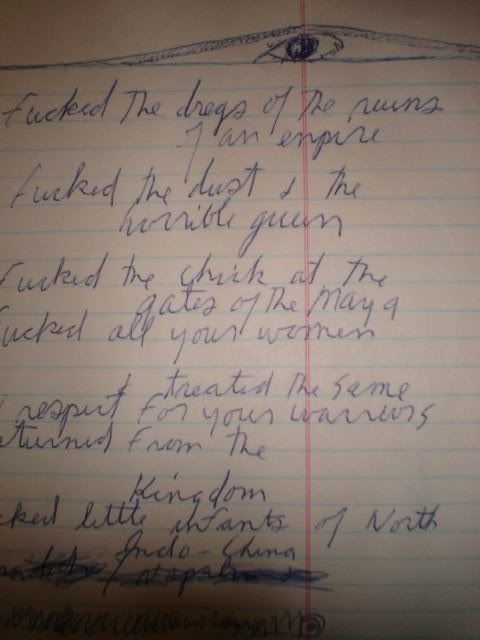 Fucked The dregs of The ruins
of an empire
Fucked the dust & the
horrible queen
Fucked the chick at the
gates of The Maya
ucked all your women
& treated The same
respect for your warriors
turned from the
Kingdom
cked little infants of North
Indo-China